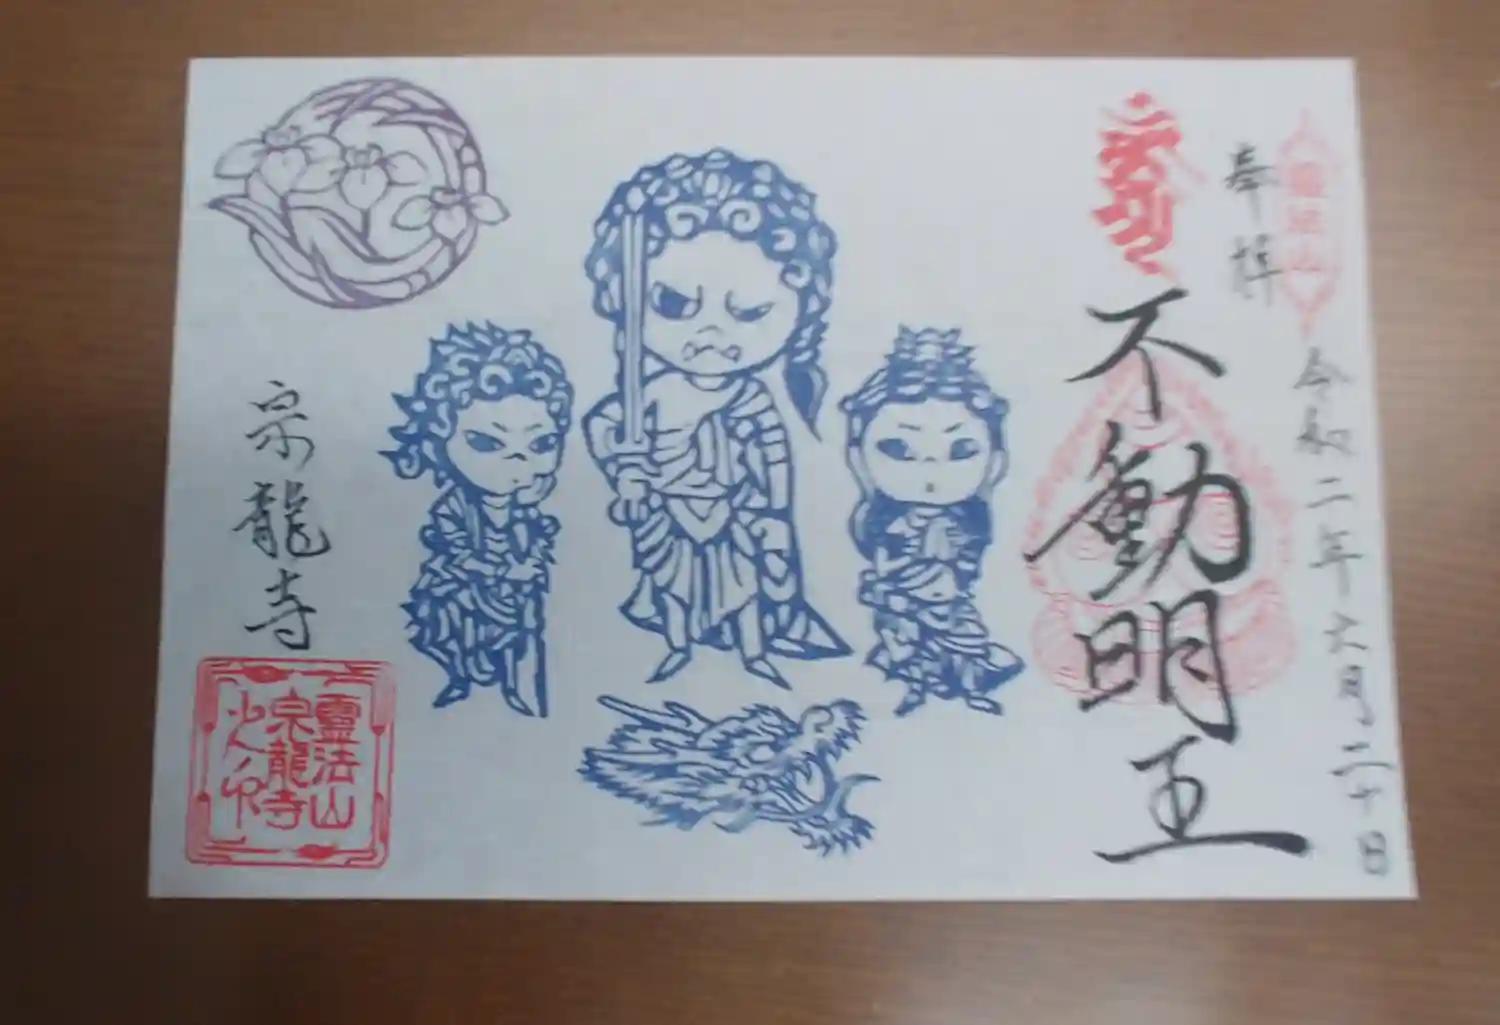 奉拝
令和二年六月二十日
不動明王
宗龍寺
靈法山
宗龍寺